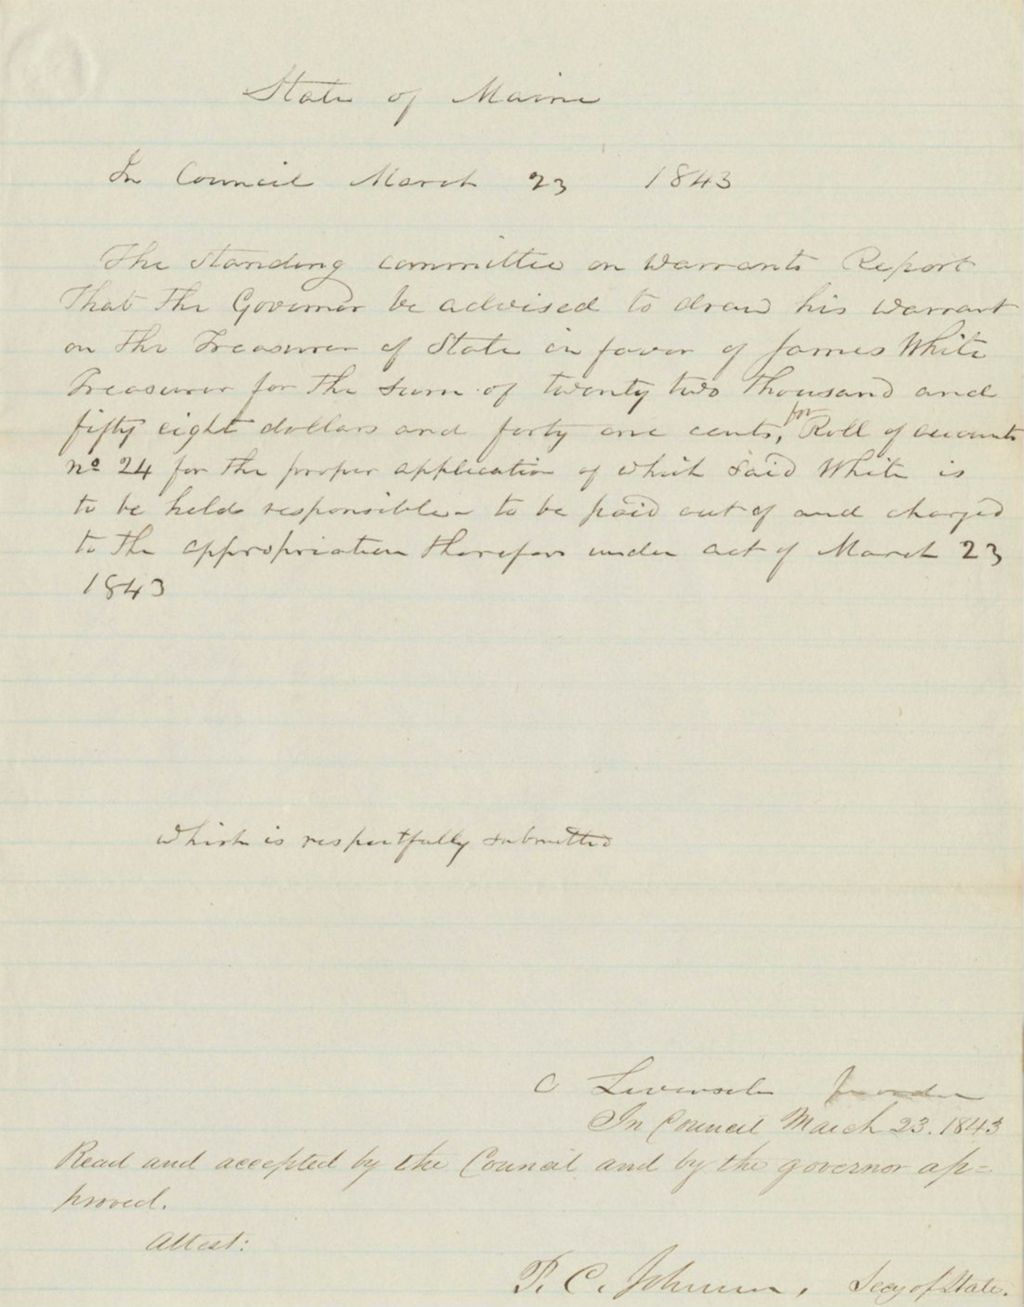 State of Maine
In Council March 23 1843
The standing committee on warrants Report
That the Governor be advised to draw his warrant
on the Treasurer of State in favor of James White
Treasurer for the sum of twenty two thousand and
fifty eight dollars and forty one cents, for Roll of accounts
no 24 for the proper application of which said White is
to be held responsible - to be paid out of and charged
to the appropriation therefor under act of March 23
1843
Which is respectfully submitted
C
In Council March 23. 1843
Read and accepted by the Council and by the governor ap=
proved.
Attest:
P. C. Johnson, Secy of State.